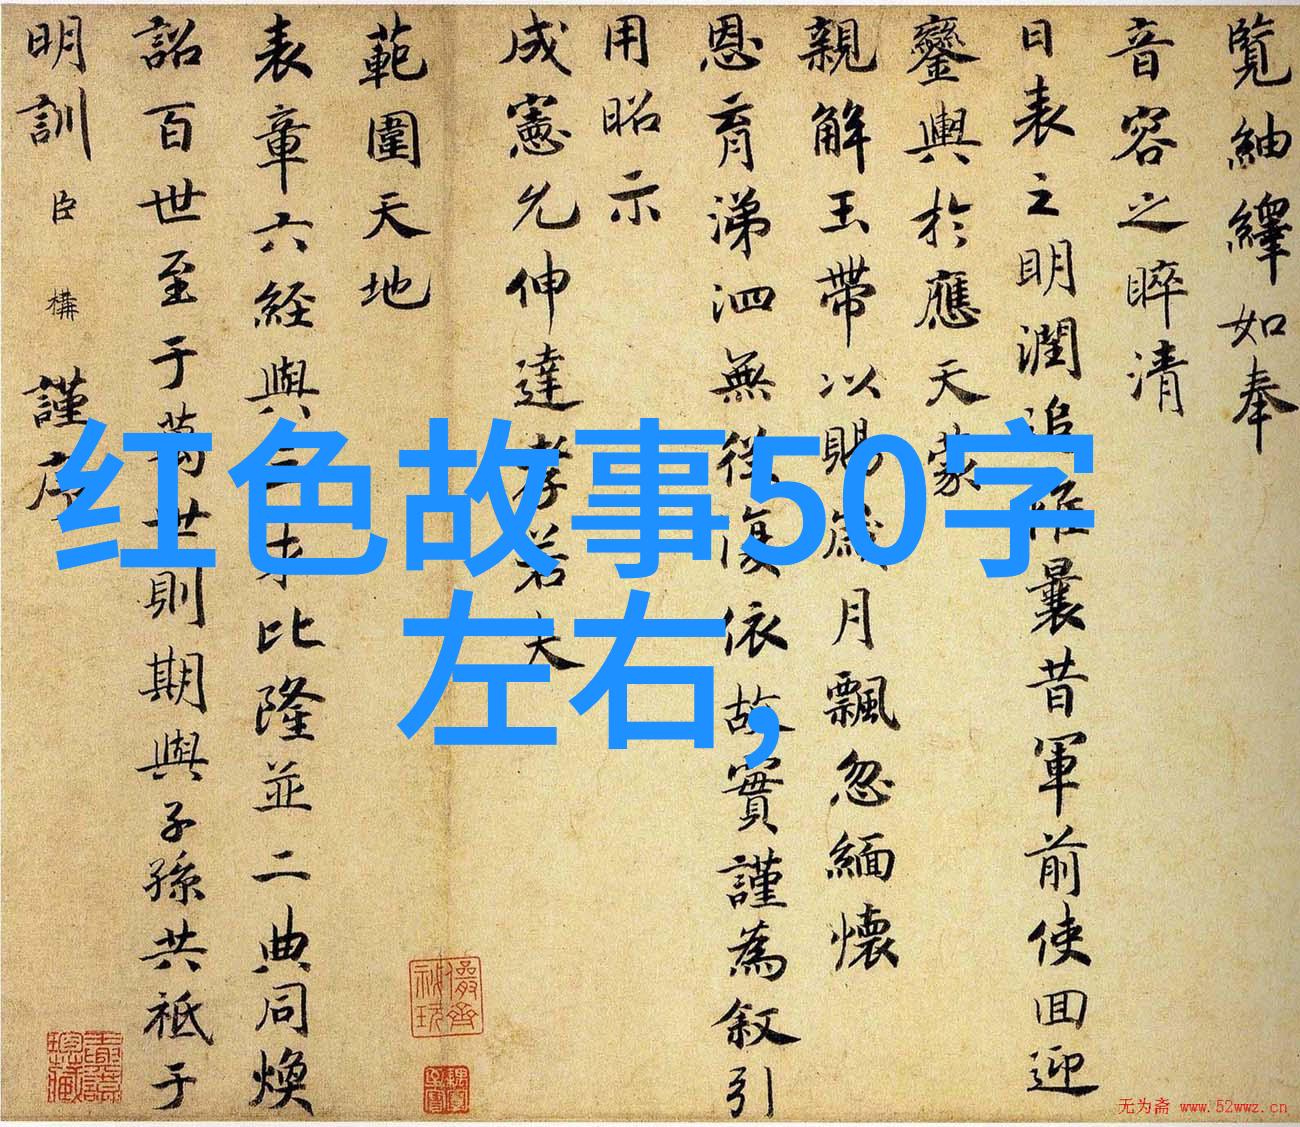 覽紬繹如奉
音容之睟清
日表之明潤追惟曩昔軍前使回迎
鑾輿於應天蒙
親解玉帶以賜歲月飄忽緬懷
恩育涕泗無從復依故實謹為叙引
用昭示
成憲允伸達孝若夫
範圍天地
表章六經與三才比隆並二典同煥
詔百世至于萬世則期與子孫共祗于
明訓臣構謹序
红色故事50字
左右,
无为斋 www.52wwz.cn